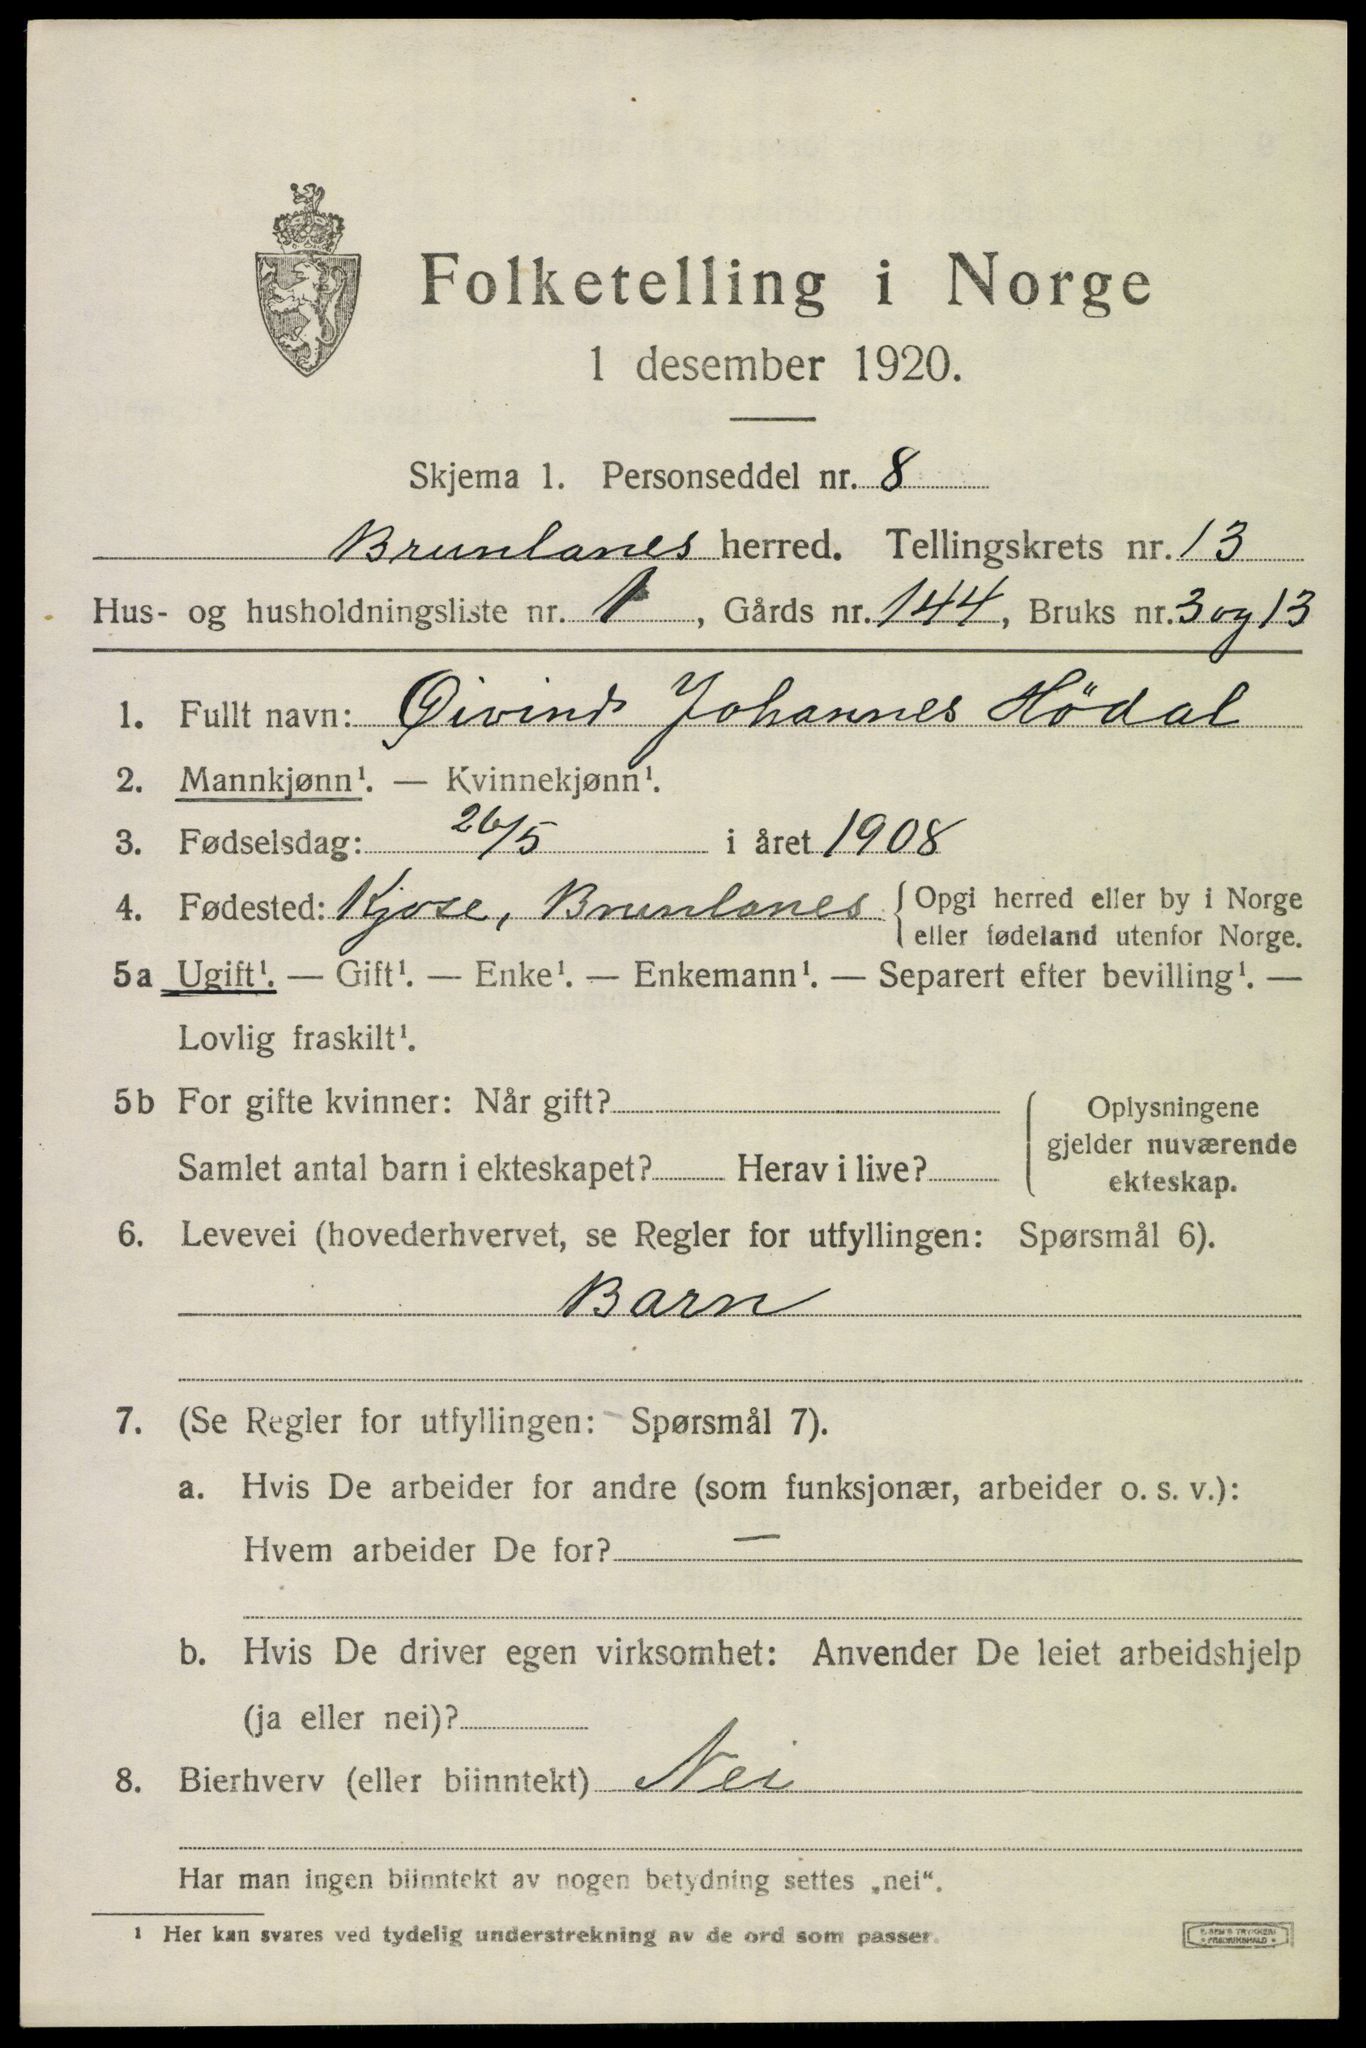 Folketelling i Norge
1 desember 1920.
Skjema 1. Personseddel nr. 8
Brunlanes herred. Tellingskrets nr. 13
Hus- og husholdningsliste nr. 1, Gårds nr. 144, Bruks nr. 3 og 13
1. Fullt navn: Øivind Johannes Hödal
2. Mannkjønn¹. — Kvinnekjønn¹.
3. Fødselsdag: 26/5 i året 1908
4. Fødested: Kjose, Brunlanes { Opgi herred eller by i Norge
eller fødeland utenfor Norge.
5a Ugift¹. — Gift¹. — Enke¹. — Enkemann¹. — Separert efter bevilling¹. —
Lovlig fraskilt¹.
5b For gifte kvinner: Når gift? { Oplysningene
gjelder nuværende
Samlet antal barn i ekteskapet? Herav i live?
ekteskap.
6. Levevei (hovederhvervet, se Regler for utfyllingen: Spørsmål 6).
Barn
7. (Se Regler for utfyllingen: Spørsmål 7).
a. Hvis De arbeider for andre (som funksjonær, arbeider o. s. v.):
Hvem arbeider De for? —
b. Hvis De driver egen virksomhet: Anvender De leiet arbeidshjelp
(ja eller nei)?
8. Bierhverv (eller biinntekt) Nei
Har man ingen biinntekt av nogen betydning settes „nei“.
¹ Her kan svares ved tydelig understrekning av de ord som passer.